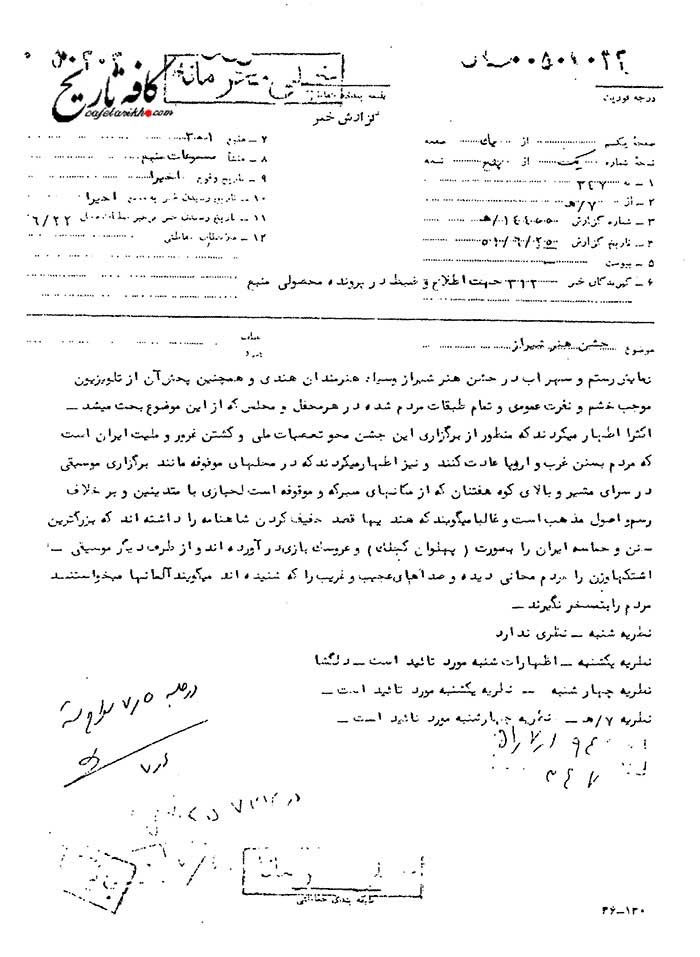 کافه تاریخ
cafetarikh.com
طبقه بندی حفاظتی
گزارش خبر
درجه فوریت
صفحه یکم از صفحه
نسخه شماره یک از پنج نسخه
۱ ـ به ۳۴۷
۲ ـ از ۷/هـ
۳ ـ شماره گزارش
۴ ـ تاریخ گزارش
۵ ـ پیوست
۶ ـ گیرندگان خبر ۳۱۲ جهت اطلاع و ضبط در پرونده محصولی منبع
۷ ـ منبع
۸ ـ منشأ مسموعات منبع
۹ ـ تاریخ وقوع اخیرا
۱۰ ـ تاریخ رسیدن خبر به منبع اخیرا
۱۱ ـ تاریخ رسیدن خبر به رهبر عملیات ۶/۲۲
۱۲ ـ ملاحظات حفاظتی
موضوع جشن هنر شیراز
نمایش رستم و سهراب در جشن هنر شیراز وسیله هنرمندان هندی و همچنین پخش آن از تلویزیون
موجب خشم و نفرت عمومی و تمام طبقات مردم شده در هر محفل و مجلس که از این موضوع بحث میشد ـ
اکثرا اظهار میکردند که منظور از برگزاری این جشن محو تعصبات ملی و کشتن غرور و ملیت ایران است
که مردم بسنن غرب و اروپا عادت کنند و نیز اظهار میکردند که در محلهای موقوفه مانند برگزاری موسیقی
در سرای مشیر و بالای کوه هفتنان که از مکانهای متبرکه و موقوفه است لجبازی با متدینین و بر خلاف
رسم و اصول مذهب است و غالبا میگویند که هندیها قصد خفیف کردن شاهنامه را داشته اند که بزرگترین
سنن و حماسه ایران را بصورت ( پهلوان کچلک ) و عروسک بازی در آورده اند و از طرف دیگر موسیقی ـ
اشتکهاوزن را مردم مجانی دیده و صداهای عجیب و غریب را که شنیده اند میگویند آلمانها میخواستند
مردم را بتمسخر نگیرند ـ
نظریه شنبه ـ نظری ندارد
نظریه یکشنبه ـ اظهارات شنبه مورد تائید است ـ دلگشا
نظریه چهار شنبه ـ نظریه یکشنبه مورد تائید است ـ
نظریه ۷/هـ ـ نظریه چهارشنبه مورد تائید است ـ
طبقه بندی حفاظتی
۳۶ـ۱۲۰